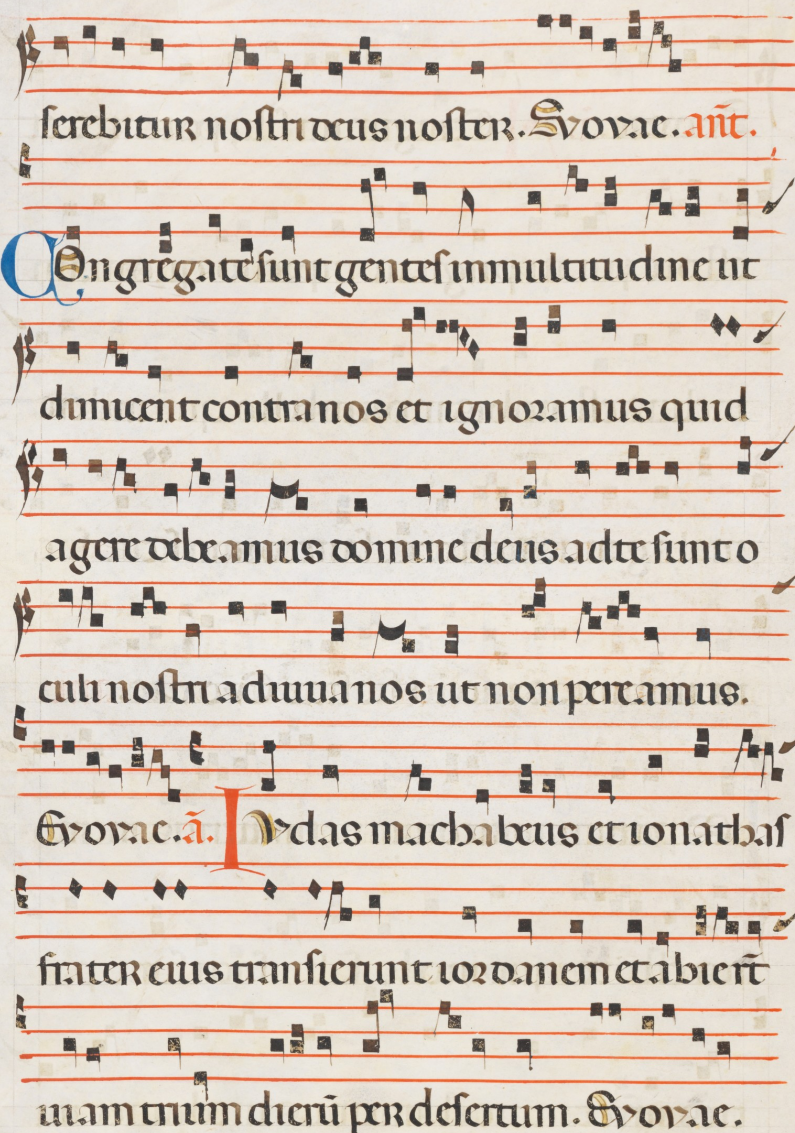 serebitur nostri deus noster. Evovae. añt.
Congregate sunt gentes in multitudine ut
dimicent contra nos et ignoramus quid
agere debeamus domine deus ad te sunt o
culi nostri adiuua nos ut non pereamus.
Evovae. ã. Iudas machabeus et ionathas
frater eius transierunt iordanem et abier̃t
uiam trium dierũ per desertum. Evovae.